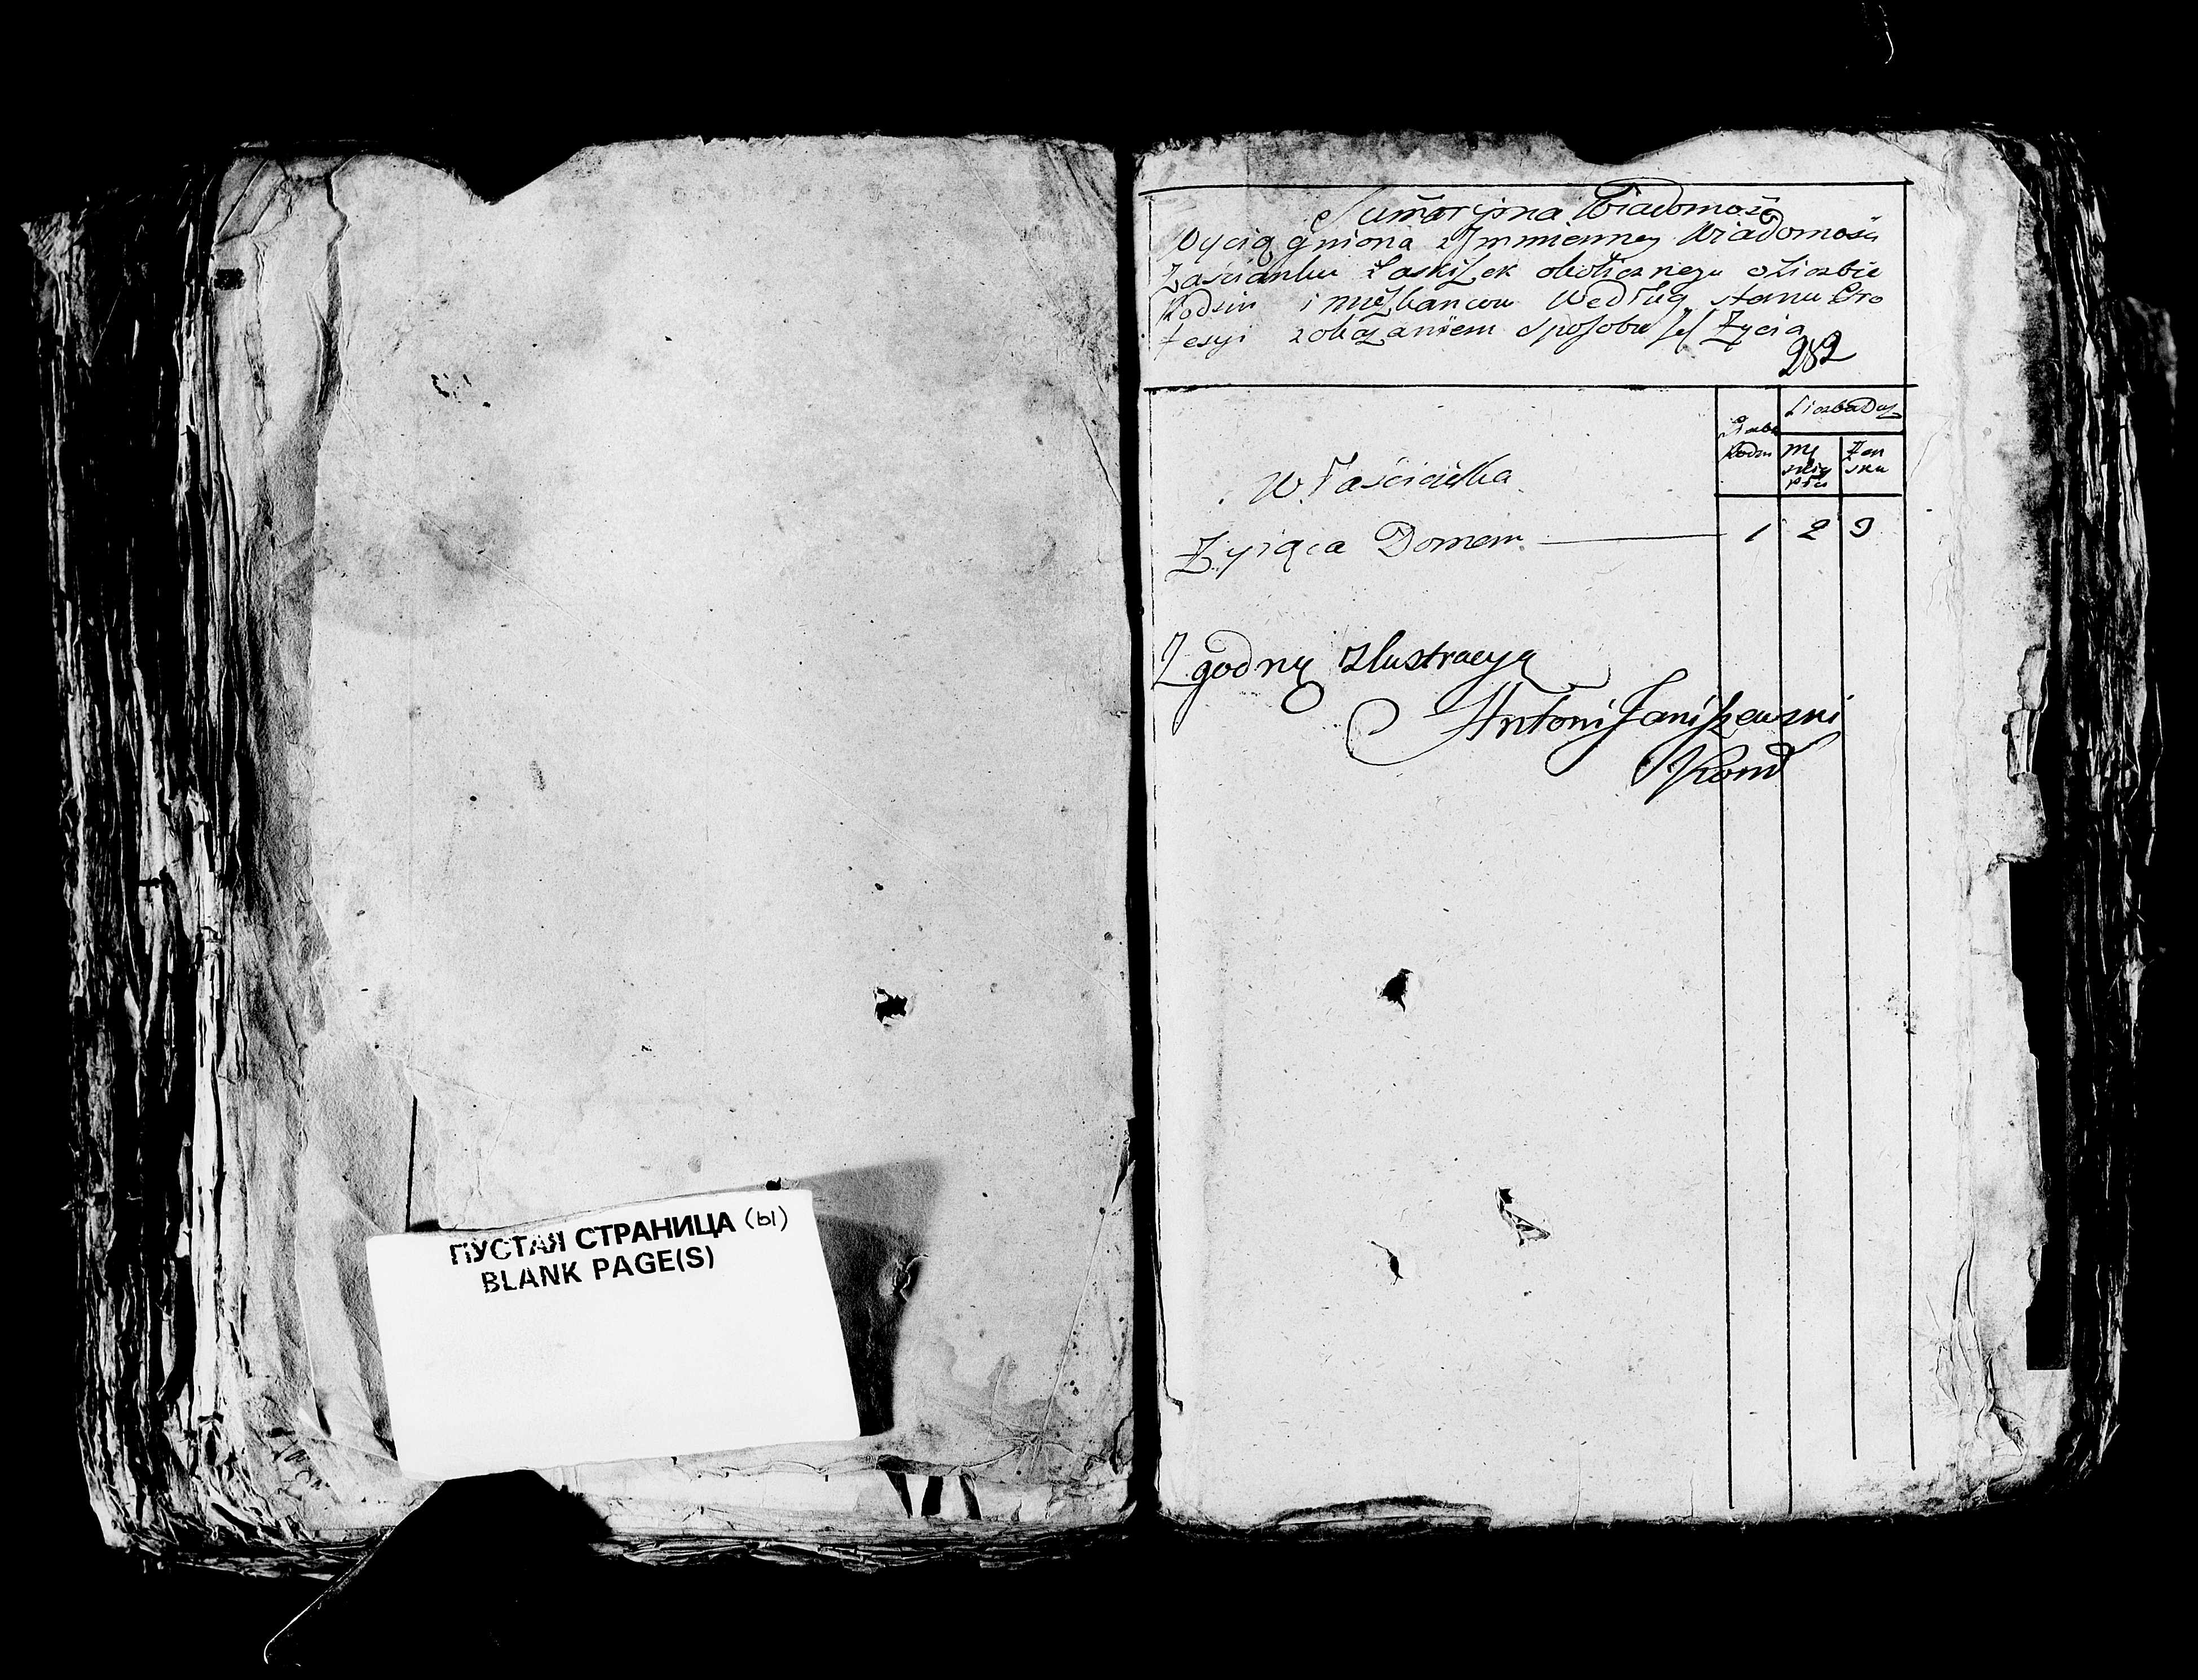 ПУСТАЯ СТРАНИЦА (ы)
BLANK PAGE(S)
Sumaryina Wiadomość
Wyciągniona z Jmmienney Wiadomości
Zaścianku okolicznego o Liczbie
Rodzin i mieszkancow Według stanu Pro
fesyi z okazaniem sposobu Jch Życia
282
Liczba Dusz
Liczba
Rodzin
Mę
skiey
Płci
Żen
skiey
Właścicielka
Żyiąca Domem 1 2 3
Zgodny z lustracyą
Antoni Janiszewski